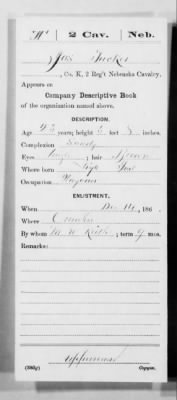 2 Cav. Neb.
Jas Tucker
, Co. K, 2 Reg't Nebraska Cavalry,
Appears on
Company Descriptive Book
of the organization named above.
DESCRIPTION.
Age 43 years; height 5 feet 8 inches.
Complexion Sandy
Eyes ; hair Brown
Where born
Occupation
ENLISTMENT.
When Dec 14, 186 .
Where Omaha
By whom ; term 9 mos.
Remarks:
(383g) Copyist.